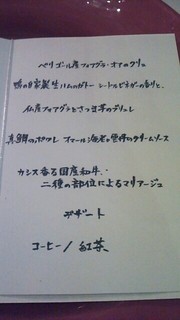 ペリゴール産フォアグラ・オアのクリュ
鴨の自家製生ハムのガトー シードルビネガーの香りと、
仏産フォアグラとさつま芋のテリーヌ
真鯛のポワレ オマール海老と雲丹のクリームソース
カシス香る国産和牛、
二種の部位によるマリアージュ
デザート
コーヒー / 紅茶